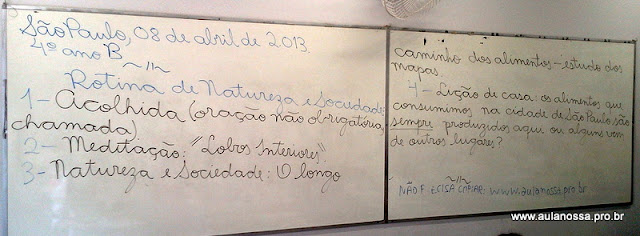 São Paulo, 08 de abril de 2013.
4º ano B
Rotina de Natureza e Sociedade:
1 - Acolhida (oração não obrigatória,
chamada)
2 - Meditação: "Lobos Interiores".
3 - Natureza e Sociedade: O longo
caminho dos alimentos - estudo dos
mapas.
4 - Lição de casa: os alimentos que
consumimos na cidade de São Paulo são
sempre produzidos aqui ou alguns vem
de outros lugares?
NÃO P ECISA COPIAR: www.aulanossa.pro.br
www.aulanossa.pro.br